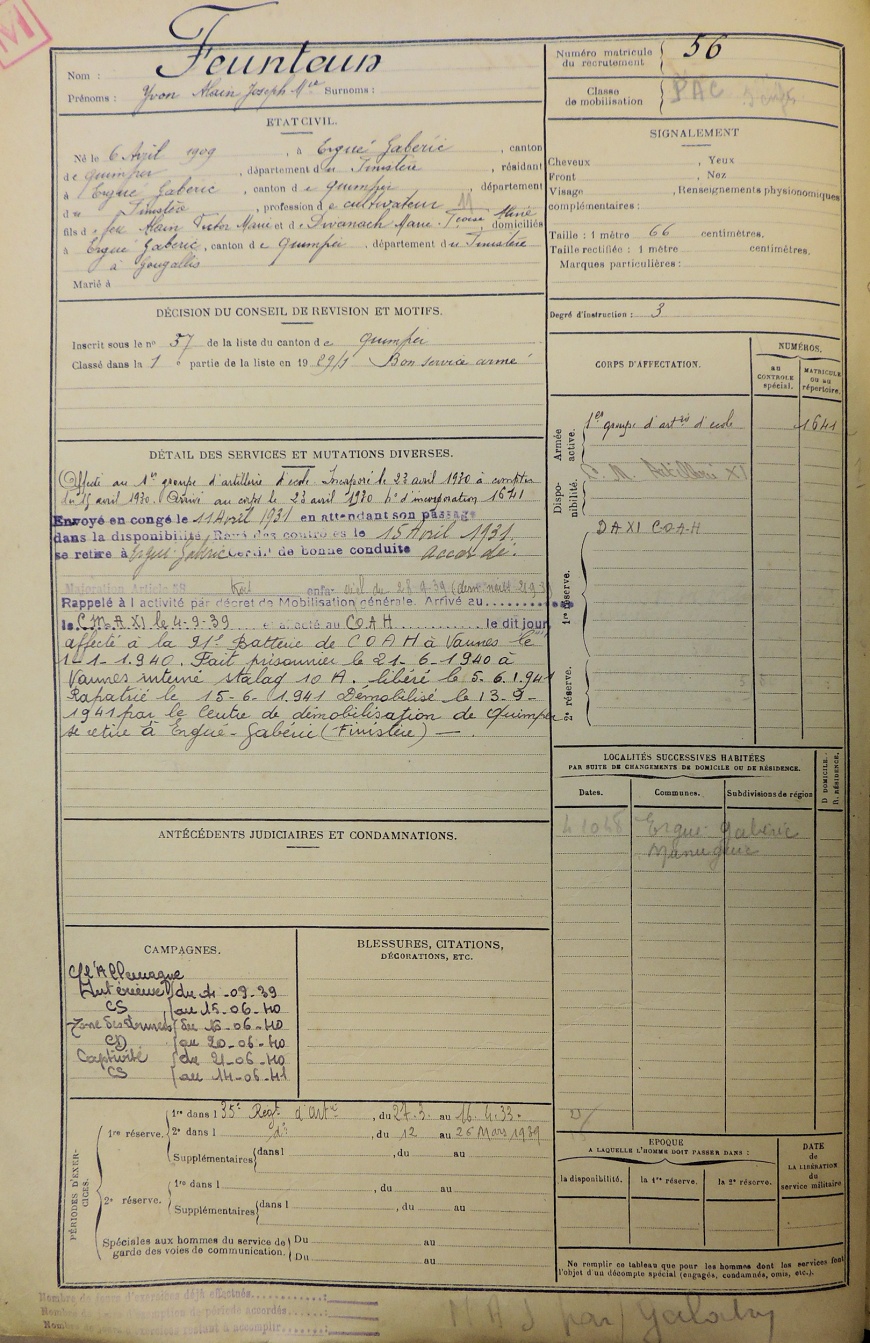 M
Nom : Feunteun
Prénoms : Yvon Alain Joseph Mie Surnoms :
ETAT CIVIL.
Né le 6 Avril 1909, à Ergué Gabéric, canton
de Quimper, département du Finistère, résidant
à Ergué Gabéric, canton de Quimper, département
du Finistère, profession de cultivateur
fils de feu Alain Victor Marie et de Divanach Marie domiciliés
à Ergué Gabéric, canton de Quimper, département du Finistère
à Gougallis
Marié à
DÉCISION DU CONSEIL DE REVISION ET MOTIFS.
Inscrit sous le n° 57 de la liste du canton de Quimper
Classé dans la 1e partie de la liste en 1929/1 Bon service armé
DÉTAIL DES SERVICES ET MUTATIONS DIVERSES.
Affecté au 1er groupe d'artillerie d'école. Incorporé le 23 avril 1930 à compter
du 15 avril 1930. Arrivé au corps le 23 avril 1930 n° d'incorporation 1641
Envoyé en congé le 11 Avril 1931 en attendant son passage
dans la disponibilité Rayé des contrôles le 15 Avril 1931
se retire à Ergué-Gabéric Certif. de bonne conduite accordé.
Majoration Article 58
Rappelé à l'activité par décret de Mobilisation générale. Arrivé au
le C M A XI le 4-9-39 et affecté au C O A H le dit jour
affecté à la 91e Batterie de C O A H à Vannes le
1-1-1.940. Fait prisonnier le 21-6-1940 à
Vannes interné stalag 10 A. libéré le 5.6.1.941
Rapatrié le 15-6-1.941 Démobilisé le 13-9-
1941 par le Centre de démobilisation de Quimper
se retire à Ergué-Gabéric (Finistère) —.
ANTÉCÉDENTS JUDICIAIRES ET CONDAMNATIONS.
CAMPAGNES.
C/l'Allemagne
Intérieur du 4-09-39
CS au 15-06-40
Zone des Armées du 16-06-40
CD au 20-06-40
Captivité du 21-06-40
CS au 14-06-41
BLESSURES, CITATIONS,
DÉCORATIONS, ETC.
PÉRIODES D'EXERCICES.
1re réserve.
1re dans l 35e Regt d'artie, du 27.3. au 16.4.33.
2e dans l do, du 12 au 26 Mars 1939
Supplémentaires dans l , du au
2e réserve.
1re dans l , du au
Supplémentaires dans l , du au
Spéciales aux hommes du service de garde des voies de communication.
Du au
Du au
Nombre de jours d'exercices déjà effectués
Numéro matricule du recrutement 56
Classe de mobilisation PAC
SIGNALEMENT
Cheveux , Yeux
Front , Nez
Visage , Renseignements physionomiques
complémentaires :
Taille : 1 mètre 66 centimètres.
Taille rectifiée : 1 mètre centimètres.
Marques particulières :
Degré d'instruction : 3
CORPS D'AFFECTATION.
NUMÉROS.
AU CONTROLE spécial.
MATRICULE OU AU répertoire.
Armée active.
1er groupe d'artie d'école 1641
Disponibilité.
C. M. Artillerie XI
1re réserve.
DAXI C O A H
2e réserve.
LOCALITÉS SUCCESSIVES HABITÉES
PAR SUITE DE CHANGEMENTS DE DOMICILE OU DE RÉSIDENCE.
Dates.
Communes.
Subdivisions de région
D. DOMICILE.
R. RÉSIDENCE.
Ergué-Gabéric
EPOQUE
A LAQUELLE L'HOMME DOIT PASSER DANS :
la disponibilité.
la 1re réserve.
la 2e réserve.
DATE
de
LA LIBÉRATION
du
service militaire.
Ne remplir ce tableau que pour les hommes dont les services font
l'objet d'un décompte spécial (engagés, condamnés, omis, etc.).